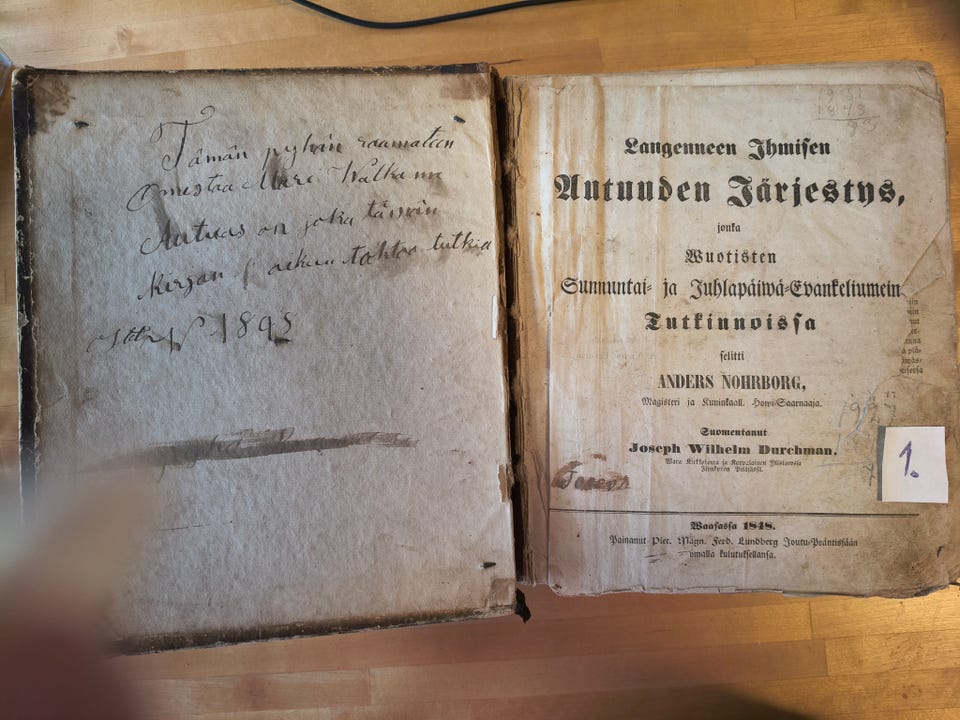 Tämän pyhän raamatun
Omistaa Mari Walkama
Autuas on joka tämän
Kirjan tahtoo tutkia
1898
1931
1848
Langenneen Ihmisen
Autuuden Järjestys,
jonka
Wuotisten
Sunnuntai- ja Juhlapäiwä-Evankeliumein
Tutkinnoissa
selitti
ANDERS NOHRBORG,
Magisteri ja Kuninkaall. Howi-Saarnaaja.
Suomentanut
Joseph Wilhelm Durchman,
Wara Kirkkoherra ja Kappalainen
Waasassa 1848.
Painanut Piet. Magn. Ferd. Lundberg Joutu-Präntissään
omalla kulutuksellansa.
1.